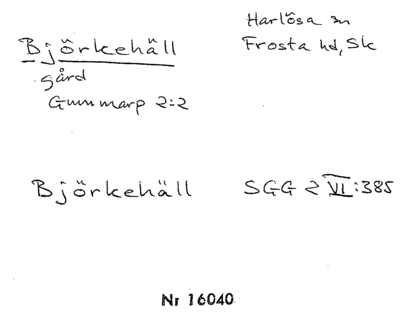 Björkehäll
gård
Gunnmarp 2:2
Harlösa sn
Frosta hd, Sk
Björkehäll
SGG 2 VI:385
Nr 16040